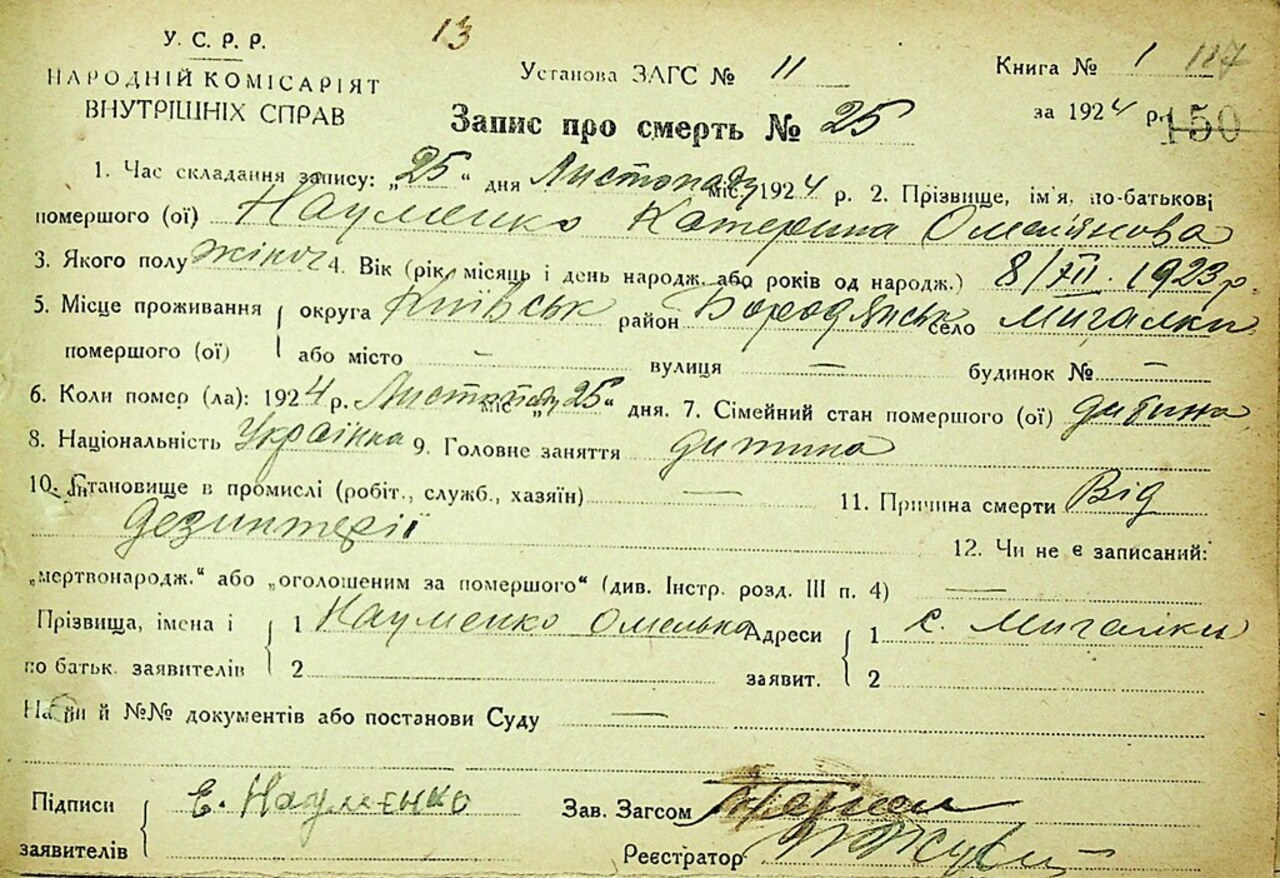 У. С. Р. Р.
НАРОДНІЙ КОМІСАРІЯТ
ВНУТРІШНІХ СПРАВ
13
Установа ЗАГС № 11
Книга № 1 117
за 1924 р. 150
Запис про смерть № 25
1. Час складання запису: „25“ дня Листопаду міс. 1924 р. 2. Прізвище, ім'я, по-батькові
помершого (ої) Науменко Катерина Омелянова
3. Якого полу жіноч 4. Вік (рік, місяць і день народж. або років од народж.) 8/XII. 1923 р.
5. Місце проживання помершого (ої) округа Київськ район Бородянськ село Мигалки
або місто — вулиця — будинок № —
6. Коли помер (ла): 1924 р. Листопаду міс. „25“ дня. 7. Сімейний стан помершого (ої) дитина
8. Національність Українка 9. Головне заняття дитина
10. Становище в промислі (робіт., служб., хазяїн) — 11. Причина смерти Від
дезинтерії 12. Чи не є записаний:
„мертвонародж.“ або „оголошеним за помершого“ (див. Інстр. розд. III п. 4) —
Прізвища, імена і 1 Науменко Омелько Адреси 1 с. Мигалки
по батьк. заявителів 2 заявит. 2
й №№ документів або постанови Суду —
Підписи Є. Науменко Зав. Загсом
заявителів Реєстратор